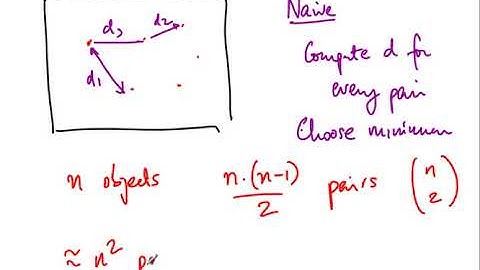 d3
d2
d1
Naive
Compute d for
every pair
Choose minimum
n objects
n.(n-1)
2
pairs
(n
2)
≈ n² p